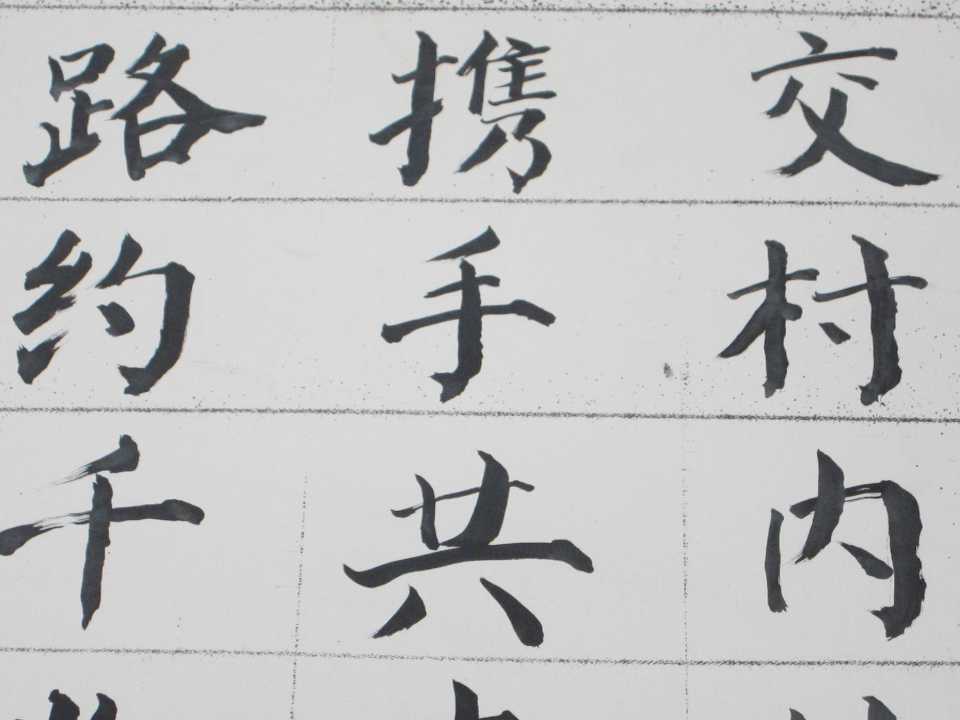 交村内
携手共
路约千